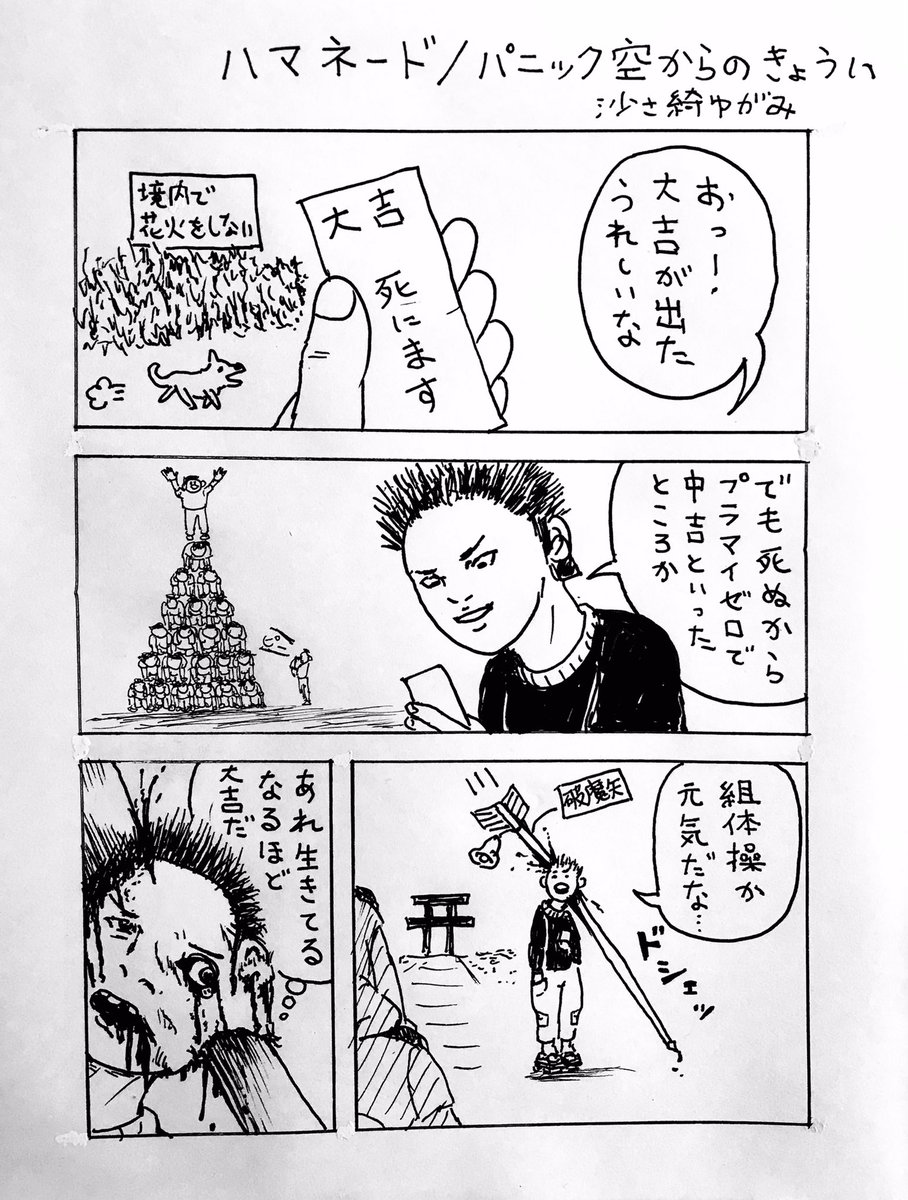 ハマネード/パニック空からのきょうい
沙さ綺ゆがみ
おっー!
大吉が出た
うれしいな
大吉
死にます
境内で
花火をしない
でも死ぬから
プラマイゼロで
中吉といった
ところか
組体操か
元気だな…
破魔矢
ドシェッ
あれ生きてる
なるほど
大吉だ